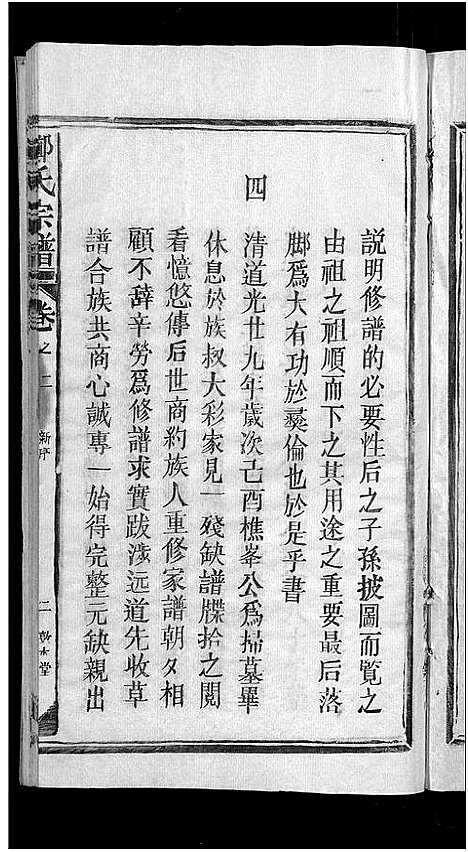 説明修譜的必要性后之子孫披圖而覧之
由祖之祖順而下之其用途之重要最后落
脚爲大有功於彛倫也於是乎書
四
清道光廿九年歲次己酉樵峯公爲掃墓畢
休息於族叔大彩家見一殘缺譜牒拾之閲
看憶悠傳后世商約族人重修家譜朝夕相
顧不辭辛勞爲修譜求實跋涉远道先收草
譜合族共商心誠專一始得完整元缺親出
鄭氏宗譜
卷之二
新序
二
敦本堂